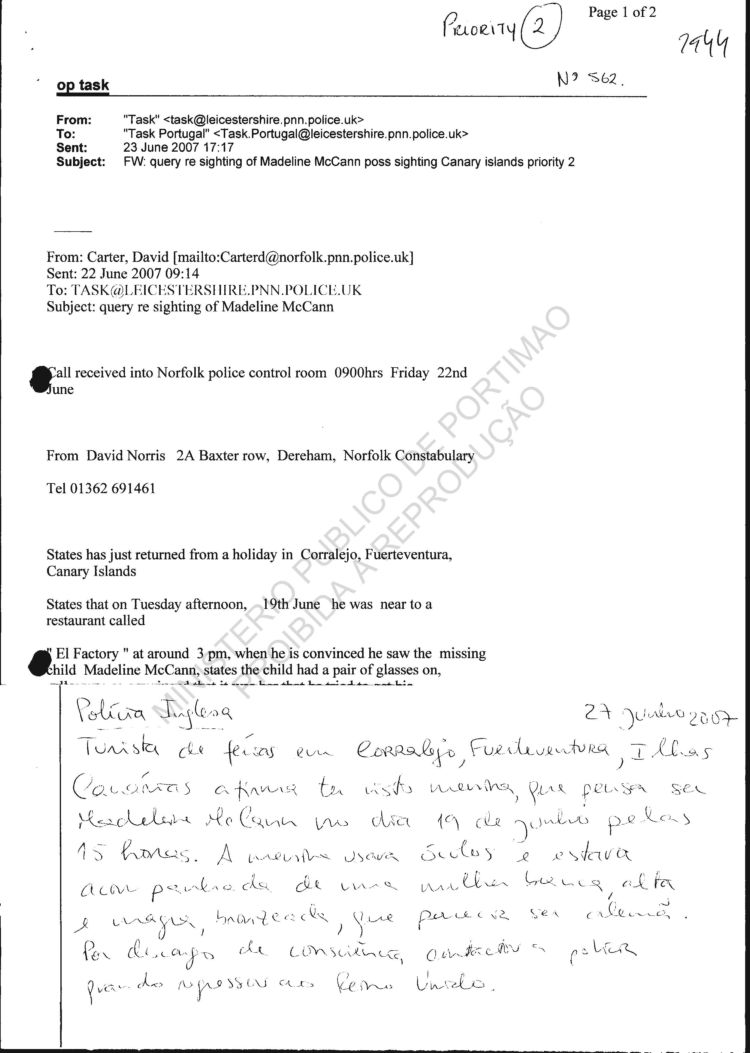 PRIORITY 2
Page 1 of 2
7944
Nº 562.
op task
From: "Task" <task@leicestershire.pnn.police.uk>
To: "Task Portugal" <Task.Portugal@leicestershire.pnn.police.uk>
Sent: 23 June 2007 17:17
Subject: FW: query re sighting of Madeline McCann poss sighting Canary islands priority 2
From: Carter, David [mailto:Carterd@norfolk.pnn.police.uk]
Sent: 22 June 2007 09:14
To: TASK@LEICESTERSHIRE.PNN.POLICE.UK
Subject: query re sighting of Madeline McCann
Call received into Norfolk police control room 0900hrs Friday 22nd
June
From David Norris 2A Baxter row, Dereham, Norfolk Constabulary
Tel 01362 691461
States has just returned from a holiday in Corralejo, Fuerteventura,
Canary Islands
States that on Tuesday afternoon, 19th June he was near to a
restaurant called
" El Factory " at around 3 pm, when he is convinced he saw the missing
child Madeline McCann, states the child had a pair of glasses on,
MINISTERIO PUBLICO DE PORTIMAO
PROIBIDA A REPRODUÇÃO
Polícia Inglesa
27 Junho 2007
Turista de férias em Corralejo, Fuerteventura, Ilhas
Canárias afirma ter visto menina, que pensa ser
Madeleine McCann no dia 19 de junho pelas
15 horas. A menina usava óculos e estava
acompanhada de uma mulher branca, alta
e magra, bronzeada, que parecia ser alemã.
Por descargo de consciência, contactou a polícia
quando regressou ao Reino Unido.